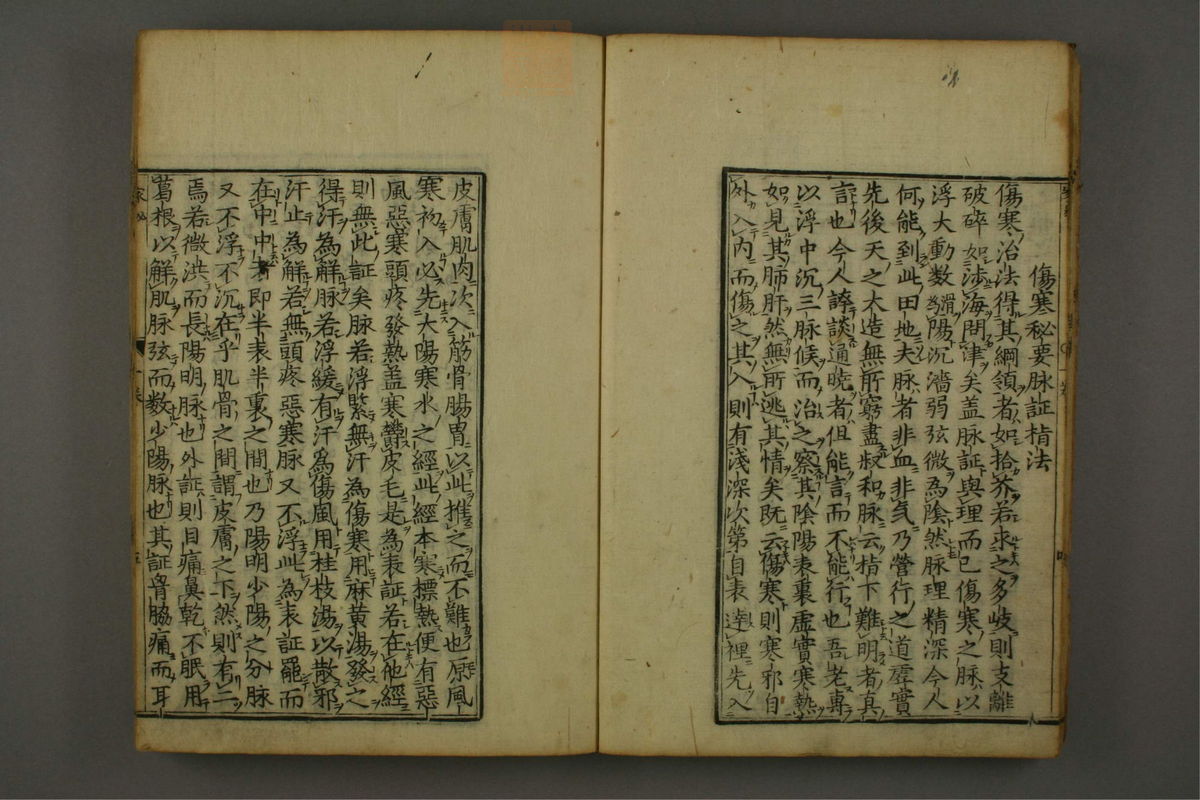 傷寒秘要脉証指法
傷寒治法得其綱領者如拾芥若求之多岐則支離
破碎如渉海問津矣盖脉証與理而已傷寒之脉以
浮大動数滑為陽沉濇弱弦微為陰然脉理精深今人
何能到此田地夫脉者非血非気乃營行之道虚實
先後天之大造無所窮盡叔和脉云指下難明者真
言也今人誇談通曉者但能言而不能行也吾老専
以浮中沉三脉候而治之察其陰陽表裏虚實寒熱
如見其肺肝然無所逃其情矣既云傷寒則寒邪自
外入内而傷之其入則有淺深次第自表達裡先入
皮膚肌肉次入筋骨腸胃以此推之而不難也原風
寒初入必先大陽寒水之經此經本寒標熱便有惡
風惡寒頭疼發熱盖寒欝皮毛是為表証若在他經
則無此証矣脉若浮緊無汗為傷寒用麻黄湯發之
得汗為解脉若浮緩有汗為傷風用桂枝湯以散邪
汗止為解若無頭疼惡寒脉又不浮此為表証罷而
在中中者即半表半裏之間也乃陽明少陽之分脉
又不浮不沉在乎肌骨之間謂皮膚之下然則有二
焉若微洪而長陽明脉也外証則目痛鼻乾不眠用
葛根以解肌脉弦而数少陽脉也其証胷脇痛而耳